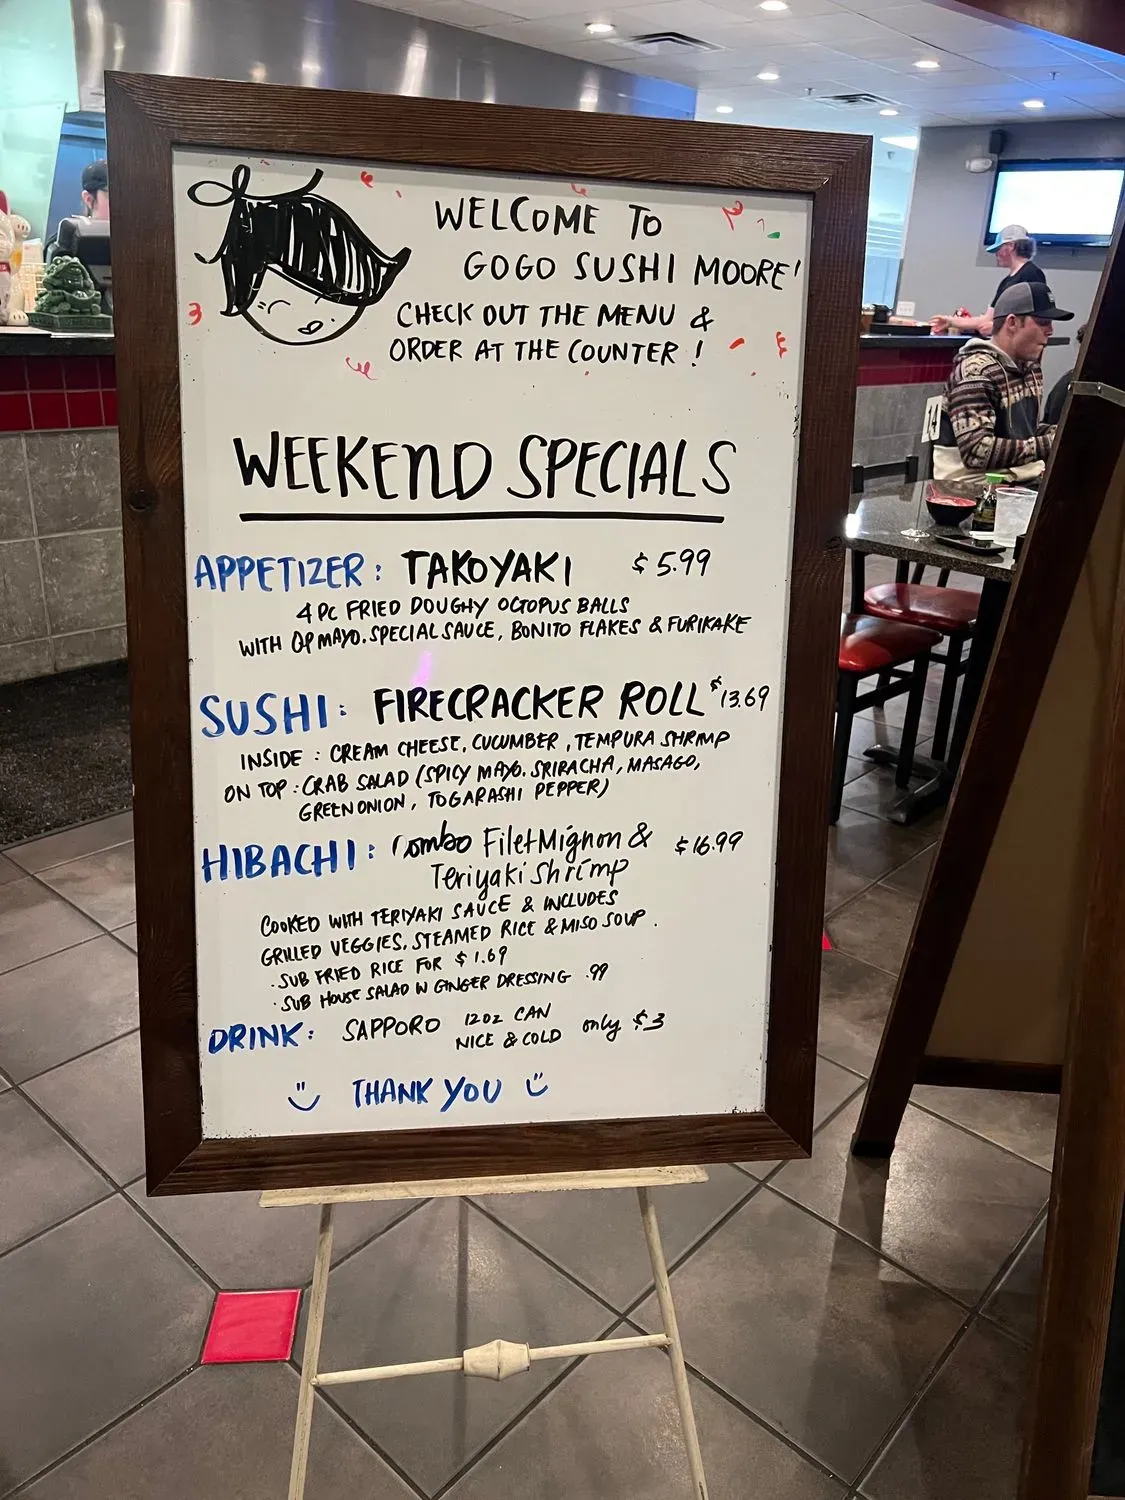 WELCOME TO
GOGO SUSHI MOORE!
CHECK OUT THE MENU &
ORDER AT THE COUNTER !
WEEKEND SPECIALS
APPETIZER: TAKOYAKI $5.99
4 PC FRIED DOUGHY OCTOPUS BALLS
WITH QP MAYO. SPECIAL SAUCE, BONITO FLAKES & FURIKAKE
SUSHI: FIRECRACKER ROLL $13.69
INSIDE : CREAM CHEESE, CUCUMBER, TEMPURA SHRIMP
ON TOP : CRAB SALAD (SPICY MAYO. SRIRACHA, MASAGO,
GREEN ONION, TOGARASHI PEPPER)
HIBACHI: Combo Filet Mignon & $16.99
Teriyaki Shrimp
COOKED WITH TERIYAKI SAUCE & INCLUDES
GRILLED VEGGIES, STEAMED RICE & MISO SOUP.
· SUB FRIED RICE FOR $1.69
· SUB HOUSE SALAD W GINGER DRESSING .99
DRINK: SAPPORO 12OZ CAN only $3
NICE & COLD
THANK YOU
14